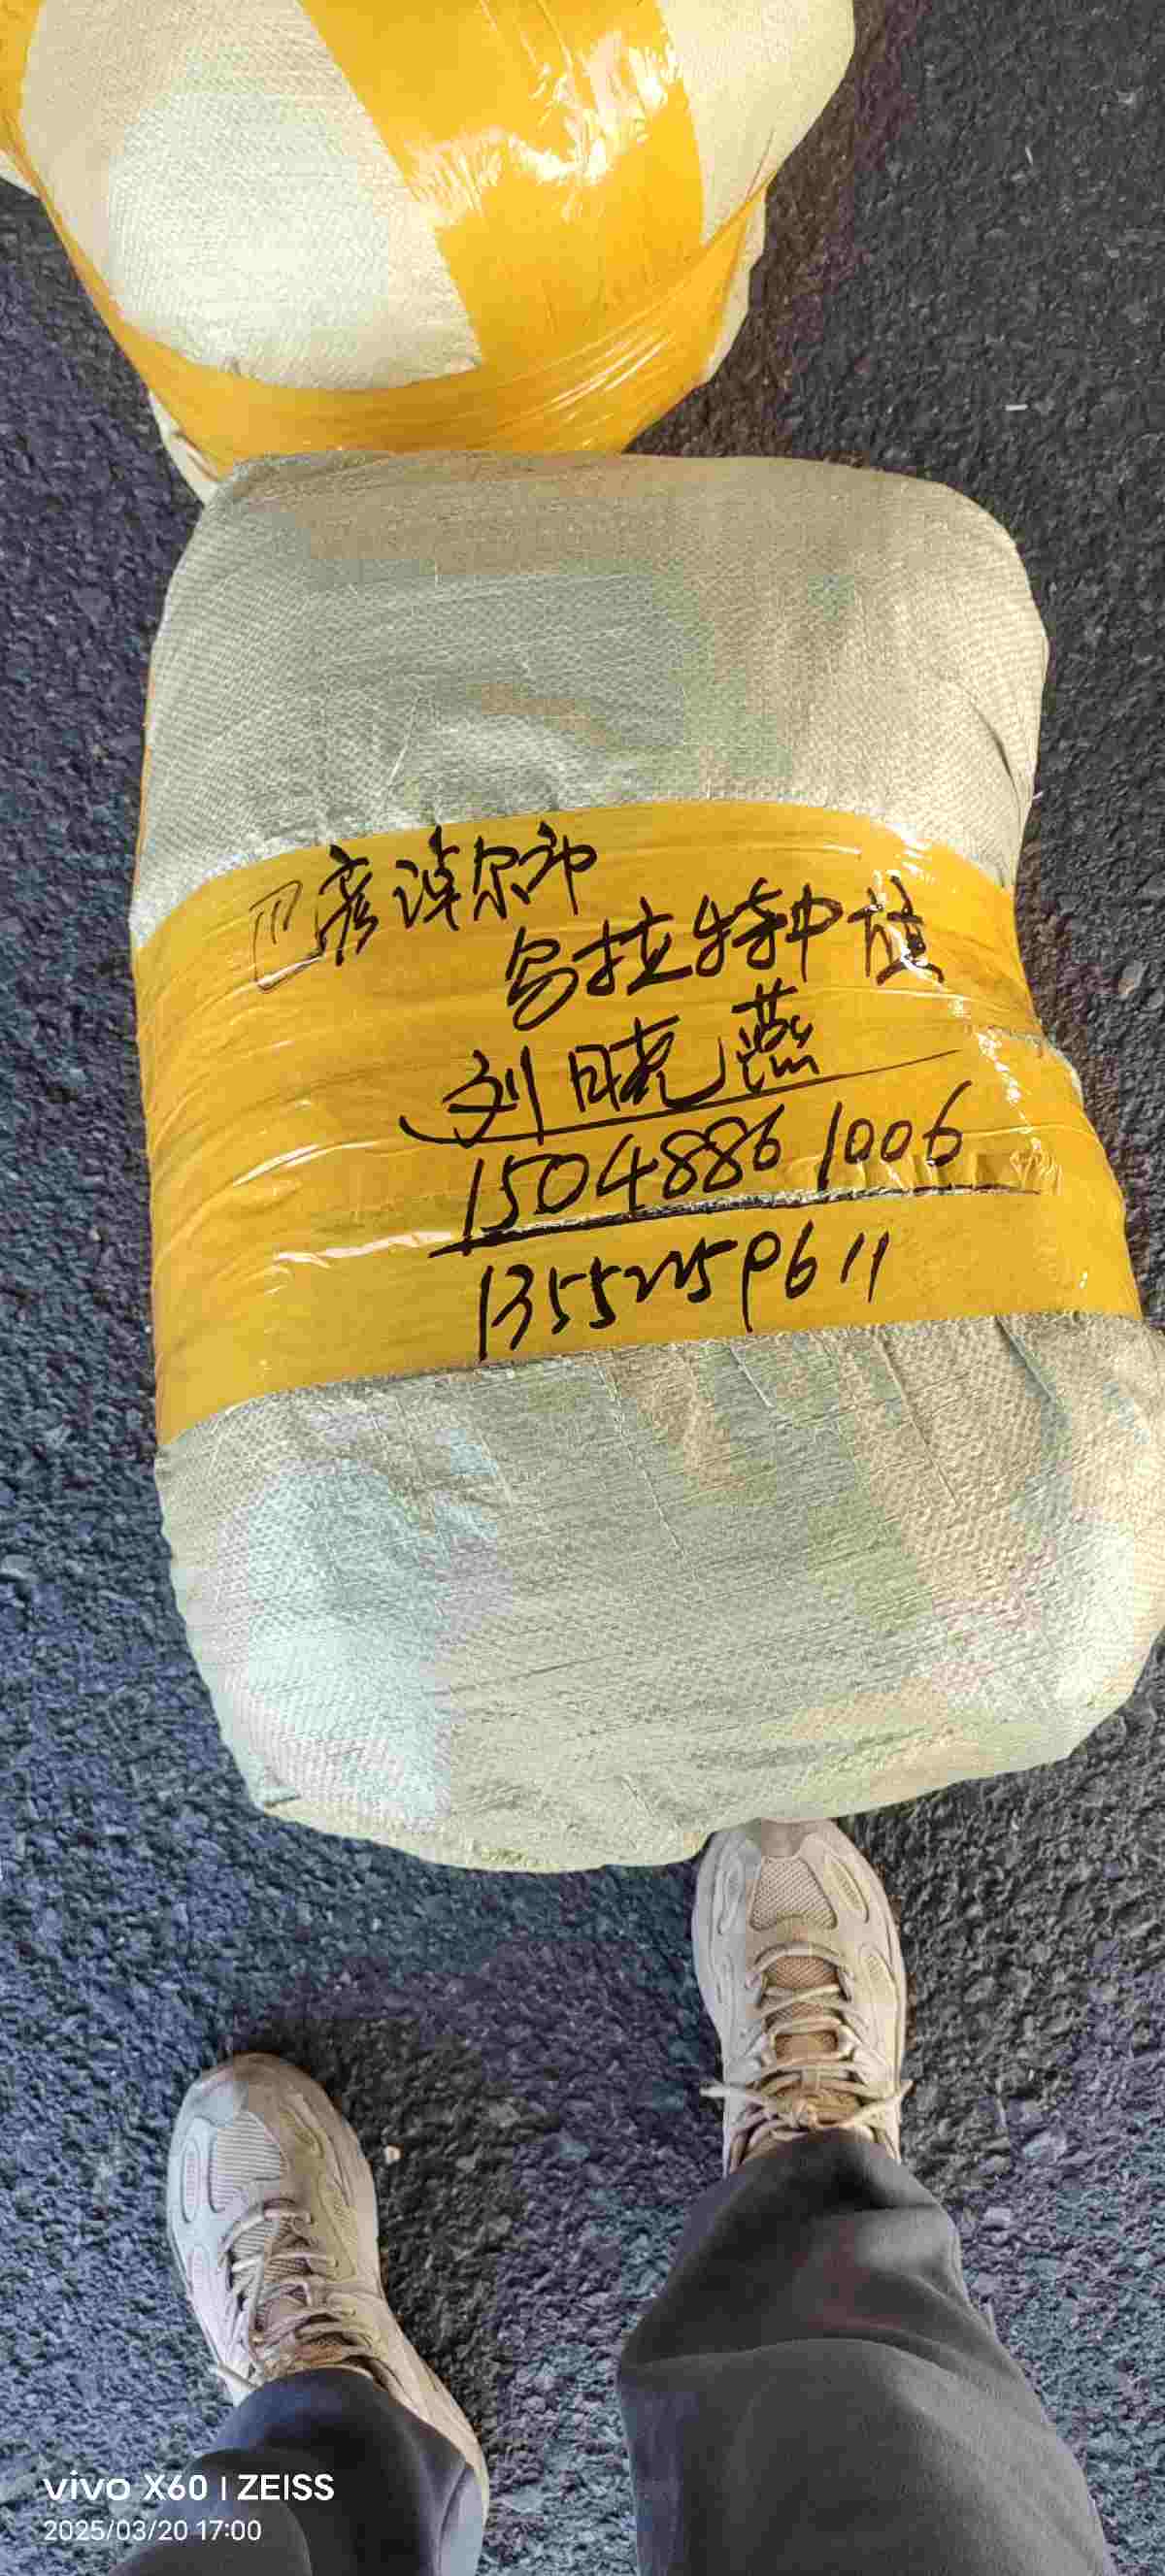 巴彦淖尔市
乌拉特中旗
刘晓燕
15048861006
13552259611
vivo X60 | ZEISS
2025/03/20 17:00